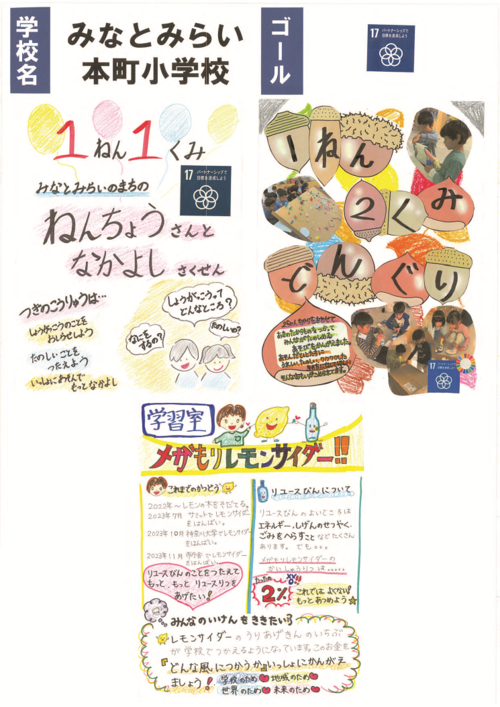 学校名
みなとみらい
本町小学校
ゴール
17 パートナーシップで
目標を達成しよう
1ねん1くみ
17 パートナーシップで
目標を達成しよう
みなとみらいのまちの
ねんちょうさんと
なかよし さくせん
つぎのこうりゅうは…
しょうがっこうのことを
おしらせしよう
たのしいことを
つたえよう
いっしょにあそんで
もっとなかよし
しょうがっこうって
どんなところ?
なにを
するの?
たのしいの?
1ねん
2くみ
どんぐり
17
学習室
メガもりレモンサイダー!!
これまでのかつどう
2022年〜レモンの木をそだてる。
2023年7月 サミットでレモンサイダー
をはんばい。
2023年10月 神奈川大学でレモンサイダー
をはんばい。
2023年11月 市庁舎でレモンサイダー
をはんばい。
リユースびんのことをつたえて
もっと、もっとリユースりつを
あげたい!
リユースびんについて
リユースびんのよいところは
エネルギー、しげんのせつやく、
ごみをへらすことなどたくさん
あります。でも…
メガもりレモンサイダーの
かいしゅうりつは……
たったの
2%
これではよくない!
もっとあつめよう
みんなのいけんをききたい!
レモンサイダーのうりあげきんのいちぶ
が学校でつかえるようになっています。このお金を
『どんな風につかうか』いっしょにかんがえ
ましょう!
学校のため 地域のため
世界のため 未来のため